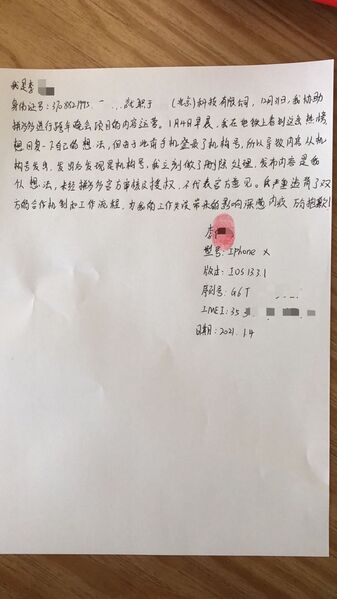 我是李
身份证号:3708821993 一 ... 就职于 (北京)科技有限公司,12月31日,我协助
拼多多进行跨年晚会项目的内容运营。1月4日早晨,我在地铁上看到这条热榜
想回复一下自己的想法,但由于此前手机登录了机构号,所以导致内容从机
构号发出,发出后发现是机构号,我立刻做了删除处理,发布内容是临
似想法,未经拼多多官方审核及授权,不代表官方意见。我严重违背了双
方的合作机制和工作流程,为我的工作失误带来的影响深感内疚,万分抱歉!
李
型号:Iphone X
版本:IOS 13.3.1
序列号:G6T
IMEI:35
日期:2021.1.4